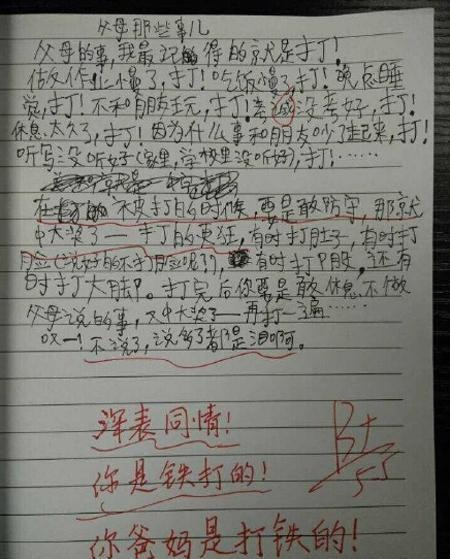 父母那些事儿
父母的事,我最记的得的就是打!
做作业慢了,打!吃饭慢了,打!晚点睡
觉,打!不和朋友玩,打!考试没考好,打!
休息太久了,打!因为什么事和朋友吵了起来,打!
听写没听好(家里,学校里没听好),打!……
在 被打的时候,要是敢防守,那就
中大奖了——打的更狂,有时打肚子,有时打
脸(说好的不打脸呢?),有时打PP股,还有
时打大腿。打完后你要是敢休息不做
父母说的事,又中大奖了——再打一遍……
哎!不说了,说多了都是泪啊。
深表同情!
你是铁打的!
B+
53
你爸妈是打铁的!